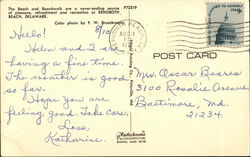 The Beach and Boardwalk are a never-ending source P73219
of pleasure, refreshment and recreation at REHOBOTH
BEACH, DELAWARE.
Color photo by F. W. Brueckmann
8/10
Hello!
Helen and I are
having a fine time.
The weather is good
so far.
Hope you are
feeling good. Take care,
Love,
Katharine.
POST CARD
Mr. Oscar Beares
3100 Rosalie Avenue
Baltimore, Md.
21234.
Plastichrome